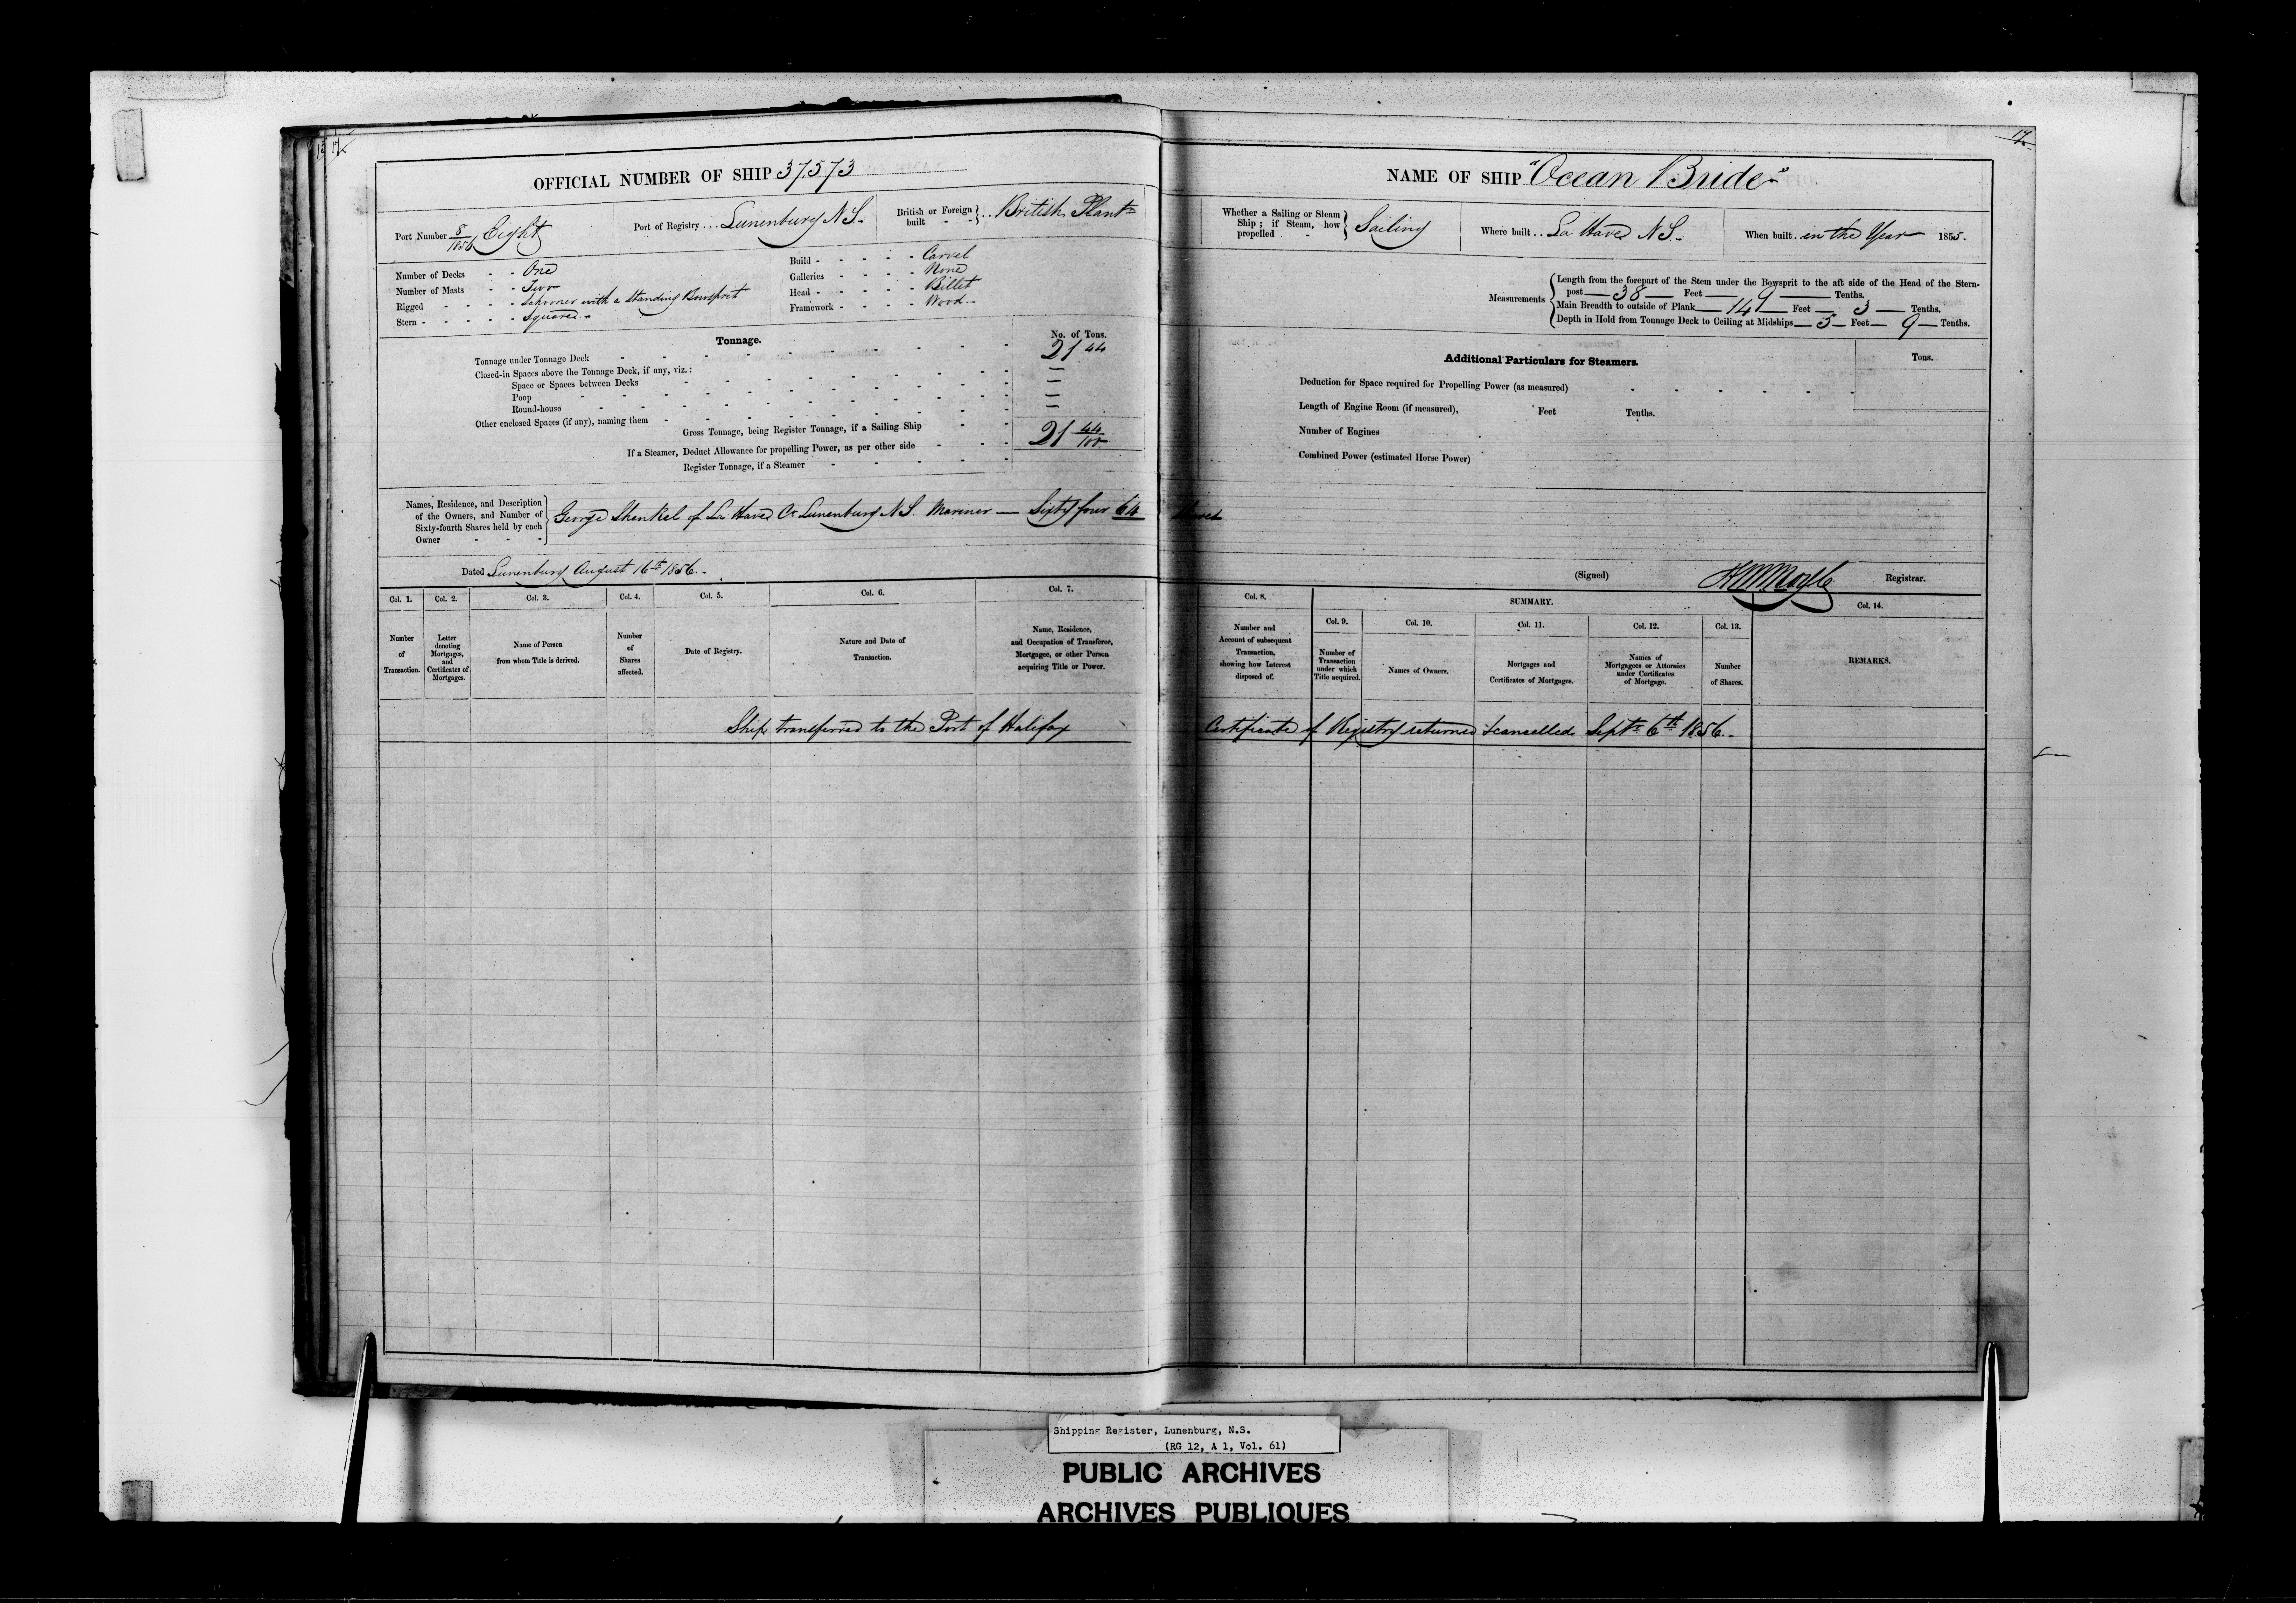 17
17
OFFICIAL NUMBER OF SHIP 37.573
Port Number 8/1856 Eight Port of Registry Lunenburg N S. British or Foreign built British Plantn
Number of Decks - - One
Number of Masts - - Two
Rigged - - - - Schooner with a Standing Bowsprit
Stern - - - - - Square.
Build - - - - - Carvel
Galleries - - - - None
Head - - - - - Billet
Framework - - - - Wood.
Tonnage. No. of Tons.
Tonnage under Tonnage Deck 21 44
Closed-in Spaces above the Tonnage Deck, if any, viz.:
Space or Spaces between Decks —
Poop —
Round-house —
Other enclosed Spaces (if any), naming them
Gross Tonnage, being Register Tonnage, if a Sailing Ship 21 44/100
If a Steamer, Deduct Allowance for propelling Power, as per other side
Register Tonnage, if a Steamer
NAME OF SHIP "Ocean Bride"
Whether a Sailing or Steam Ship; if Steam, how propelled Sailing Where built La Have N S. When built in the Year 1855.
Measurements
Length from the forepart of the Stem under the Bowsprit to the aft side of the Head of the Stern-
post — 38 — Feet — 9 — Tenths.
Main Breadth to outside of Plank — 14 — Feet — 3 — Tenths.
Depth in Hold from Tonnage Deck to Ceiling at Midships — 5 — Feet — 9 — Tenths.
Additional Particulars for Steamers. Tons.
Deduction for Space required for Propelling Power (as measured)
Length of Engine Room (if measured), Feet Tenths.
Number of Engines
Combined Power (estimated Horse Power)
Names, Residence, and Description
of the Owners, and Number of
Sixty-fourth Shares held by each
Owner
George Shenkel of La Have Co Lunenburg N S. Mariner — Sixty four 64 Shares
Dated Lunenburg August 16th 1856.
(Signed) Registrar.
Col. 1. Number of Transaction.
Col. 2. Letter denoting Mortgages, and Certificates of Mortgages.
Col. 3. Name of Person from whom Title is derived.
Col. 4. Number of Shares affected.
Col. 5. Date of Registry.
Col. 6. Nature and Date of Transaction.
Col. 7. Name, Residence, and Occupation of Transferee, Mortgagee, or other Person acquiring Title or Power.
Col. 8. Number and Account of subsequent Transaction, showing how Interest disposed of.
SUMMARY.
Col. 9. Number of Transaction under which Title acquired.
Col. 10. Names of Owners.
Col. 11. Mortgages and Certificates of Mortgages.
Col. 12. Names of Mortgagees or Attornies under Certificates of Mortgage.
Col. 13. Number of Shares.
Col. 14. REMARKS.
Ship transferred to the Port of Halifax Certificate of Registry returned & cancelled Septr 6th 1856.
Shipping Register, Lunenburg, N.S.
(RG 12, A 1, Vol. 61)
PUBLIC ARCHIVES
ARCHIVES PUBLIQUES